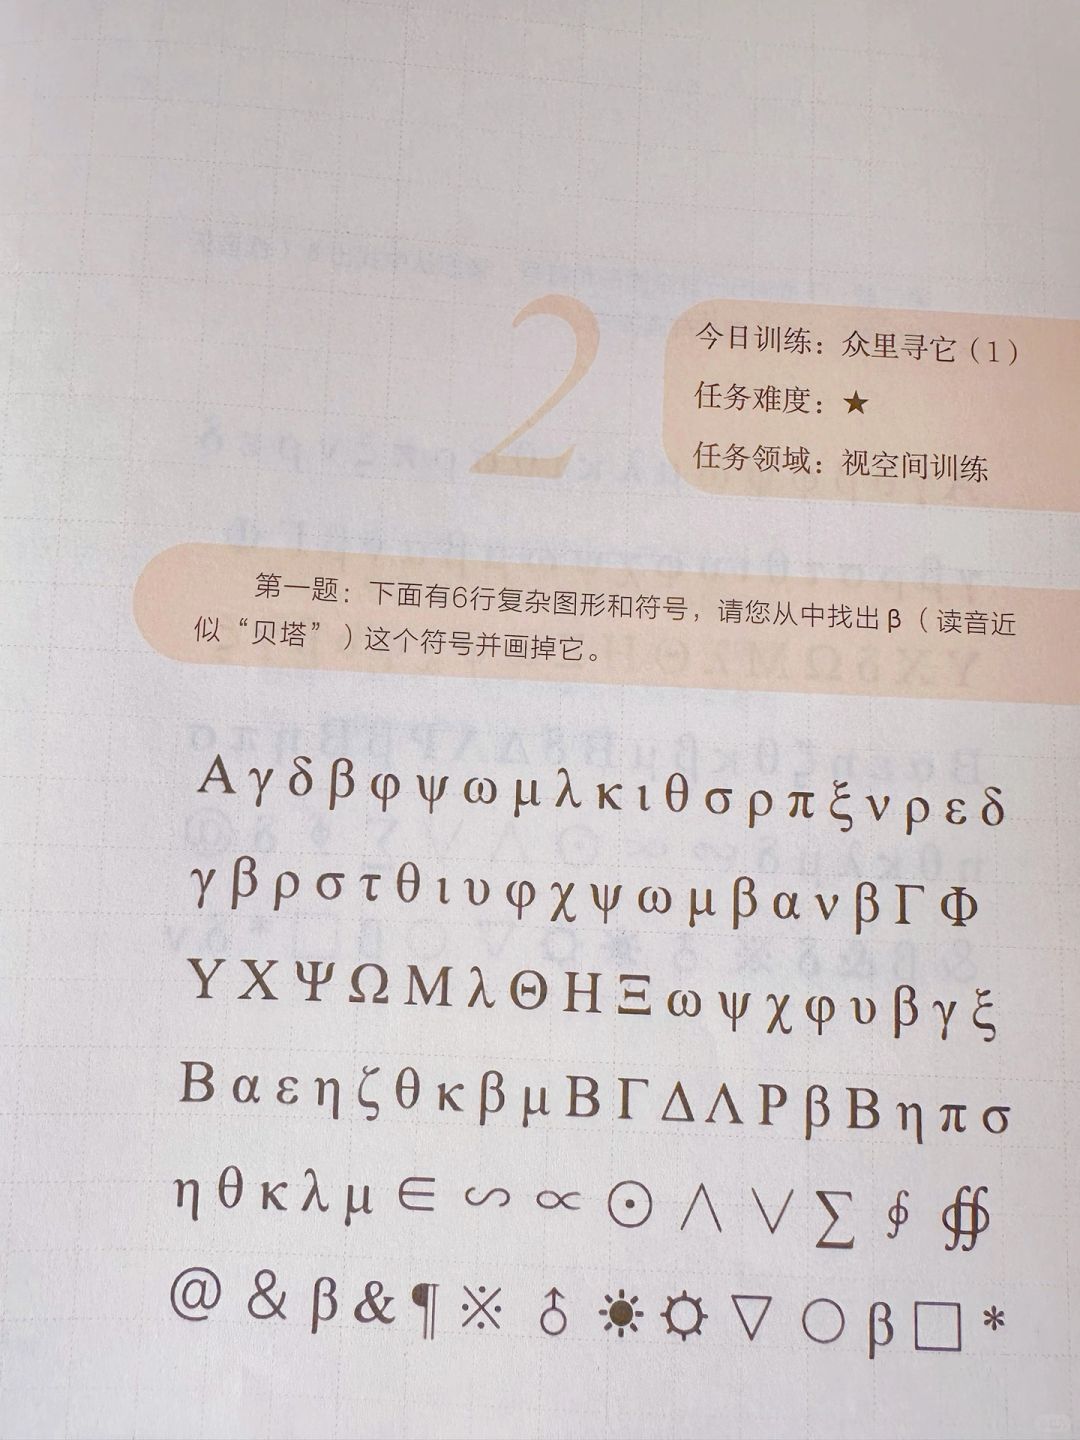 2
今日训练：众里寻它（1）
任务难度：★
任务领域：视空间训练
第一题：下面有6行复杂图形和符号，请您从中找出 β（读音近
似“贝塔”）这个符号并画掉它。
Α γ δ β φ ψ ω μ λ κ ι θ σ ρ π ξ ν ρ ε δ
γ β ρ σ τ θ ι υ φ χ ψ ω μ β α ν β Γ Φ
Υ Χ Ψ Ω Μ λ Θ Η Ξ ω ψ χ φ υ β γ ξ
Β α ε η ζ θ κ β μ Β Γ Δ Λ Ρ β Β η π σ
η θ κ λ μ ∈ ∽ ∝ ⊙ ∧ ∨ ∑ ∮ ∯
@ & β & ¶ ※ ♁ ☀ ☼ ▽ ○ β □ *